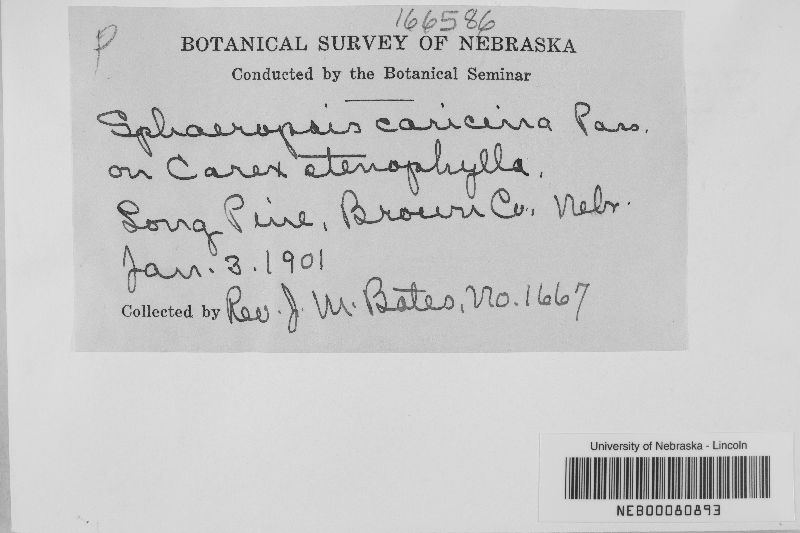 166586
P
BOTANICAL SURVEY OF NEBRASKA
Conducted by the Botanical Seminar
Sphaeropsis caricina Pass.
on Carex stenophylla,
Long Pine, Brown Co., Nebr.
Jan. 3. 1901
Collected by Rev. J. M. Bates, No. 1667
University of Nebraska - Lincoln
NEB00080893